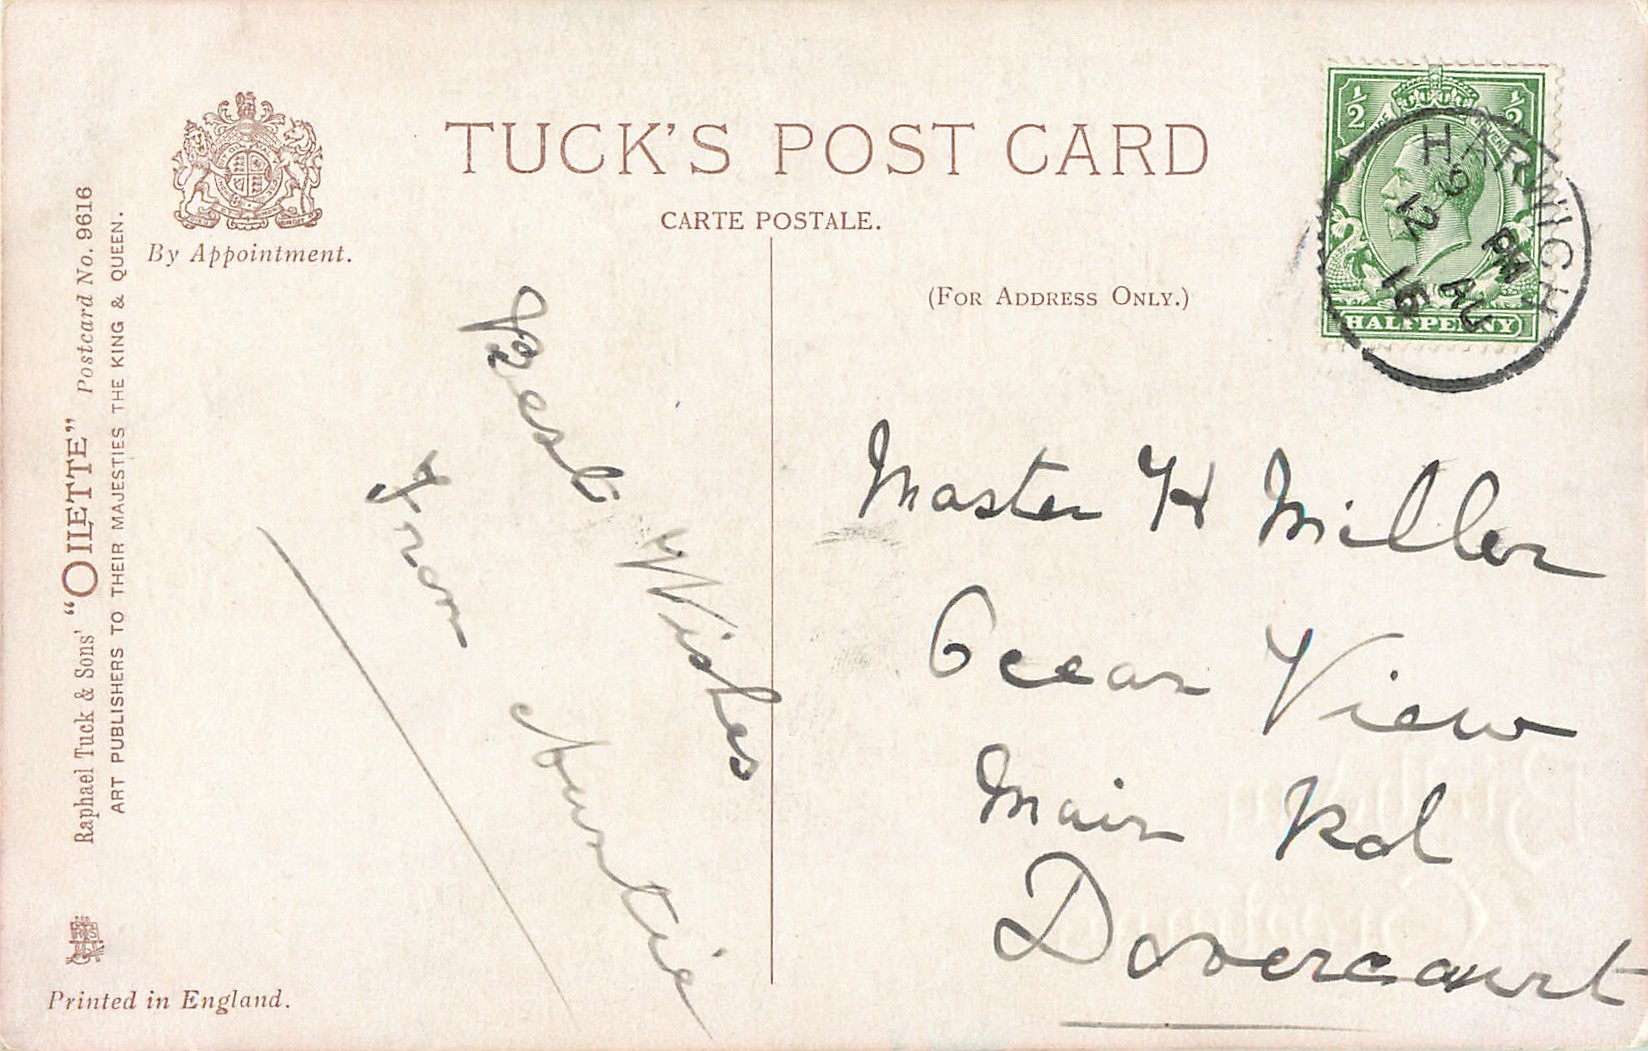 TUCK'S POST CARD
CARTE POSTALE.
By Appointment.
(FOR ADDRESS ONLY.)
Raphael Tuck & Sons' "OILETTE" Postcard No. 9616
ART PUBLISHERS TO THEIR MAJESTIES THE KING & QUEEN.
Printed in England.
Best Wishes
From Auntie
½ ½
HALFPENNY
HARWICH
PM
12 AU
16
Master H Miller
Ocean View
Main Rd
Dovercourt